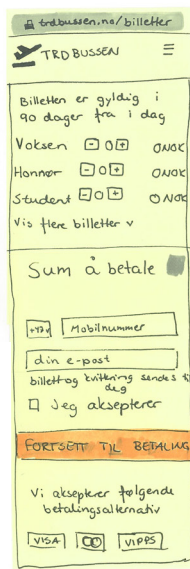 trdbussen.no/billetter
TRDBUSSEN
Billetten er gyldig i
90 dager fra i dag
Voksen - 0 + 0NOK
Honnør - 0 + 0NOK
Student - 0 + 0NOK
Vis flere billetter v
Sum å betale
+47 v Mobilnummer
din e-post
billett og kvittering sendes til
deg
Jeg aksepterer
FORTSETT TIL BETALING
Vi aksepterer følgende
betalingsalternativ
VISA VIPPS